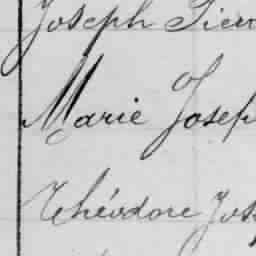 Joseph Pierr
Marie Josep
Théodore Jos